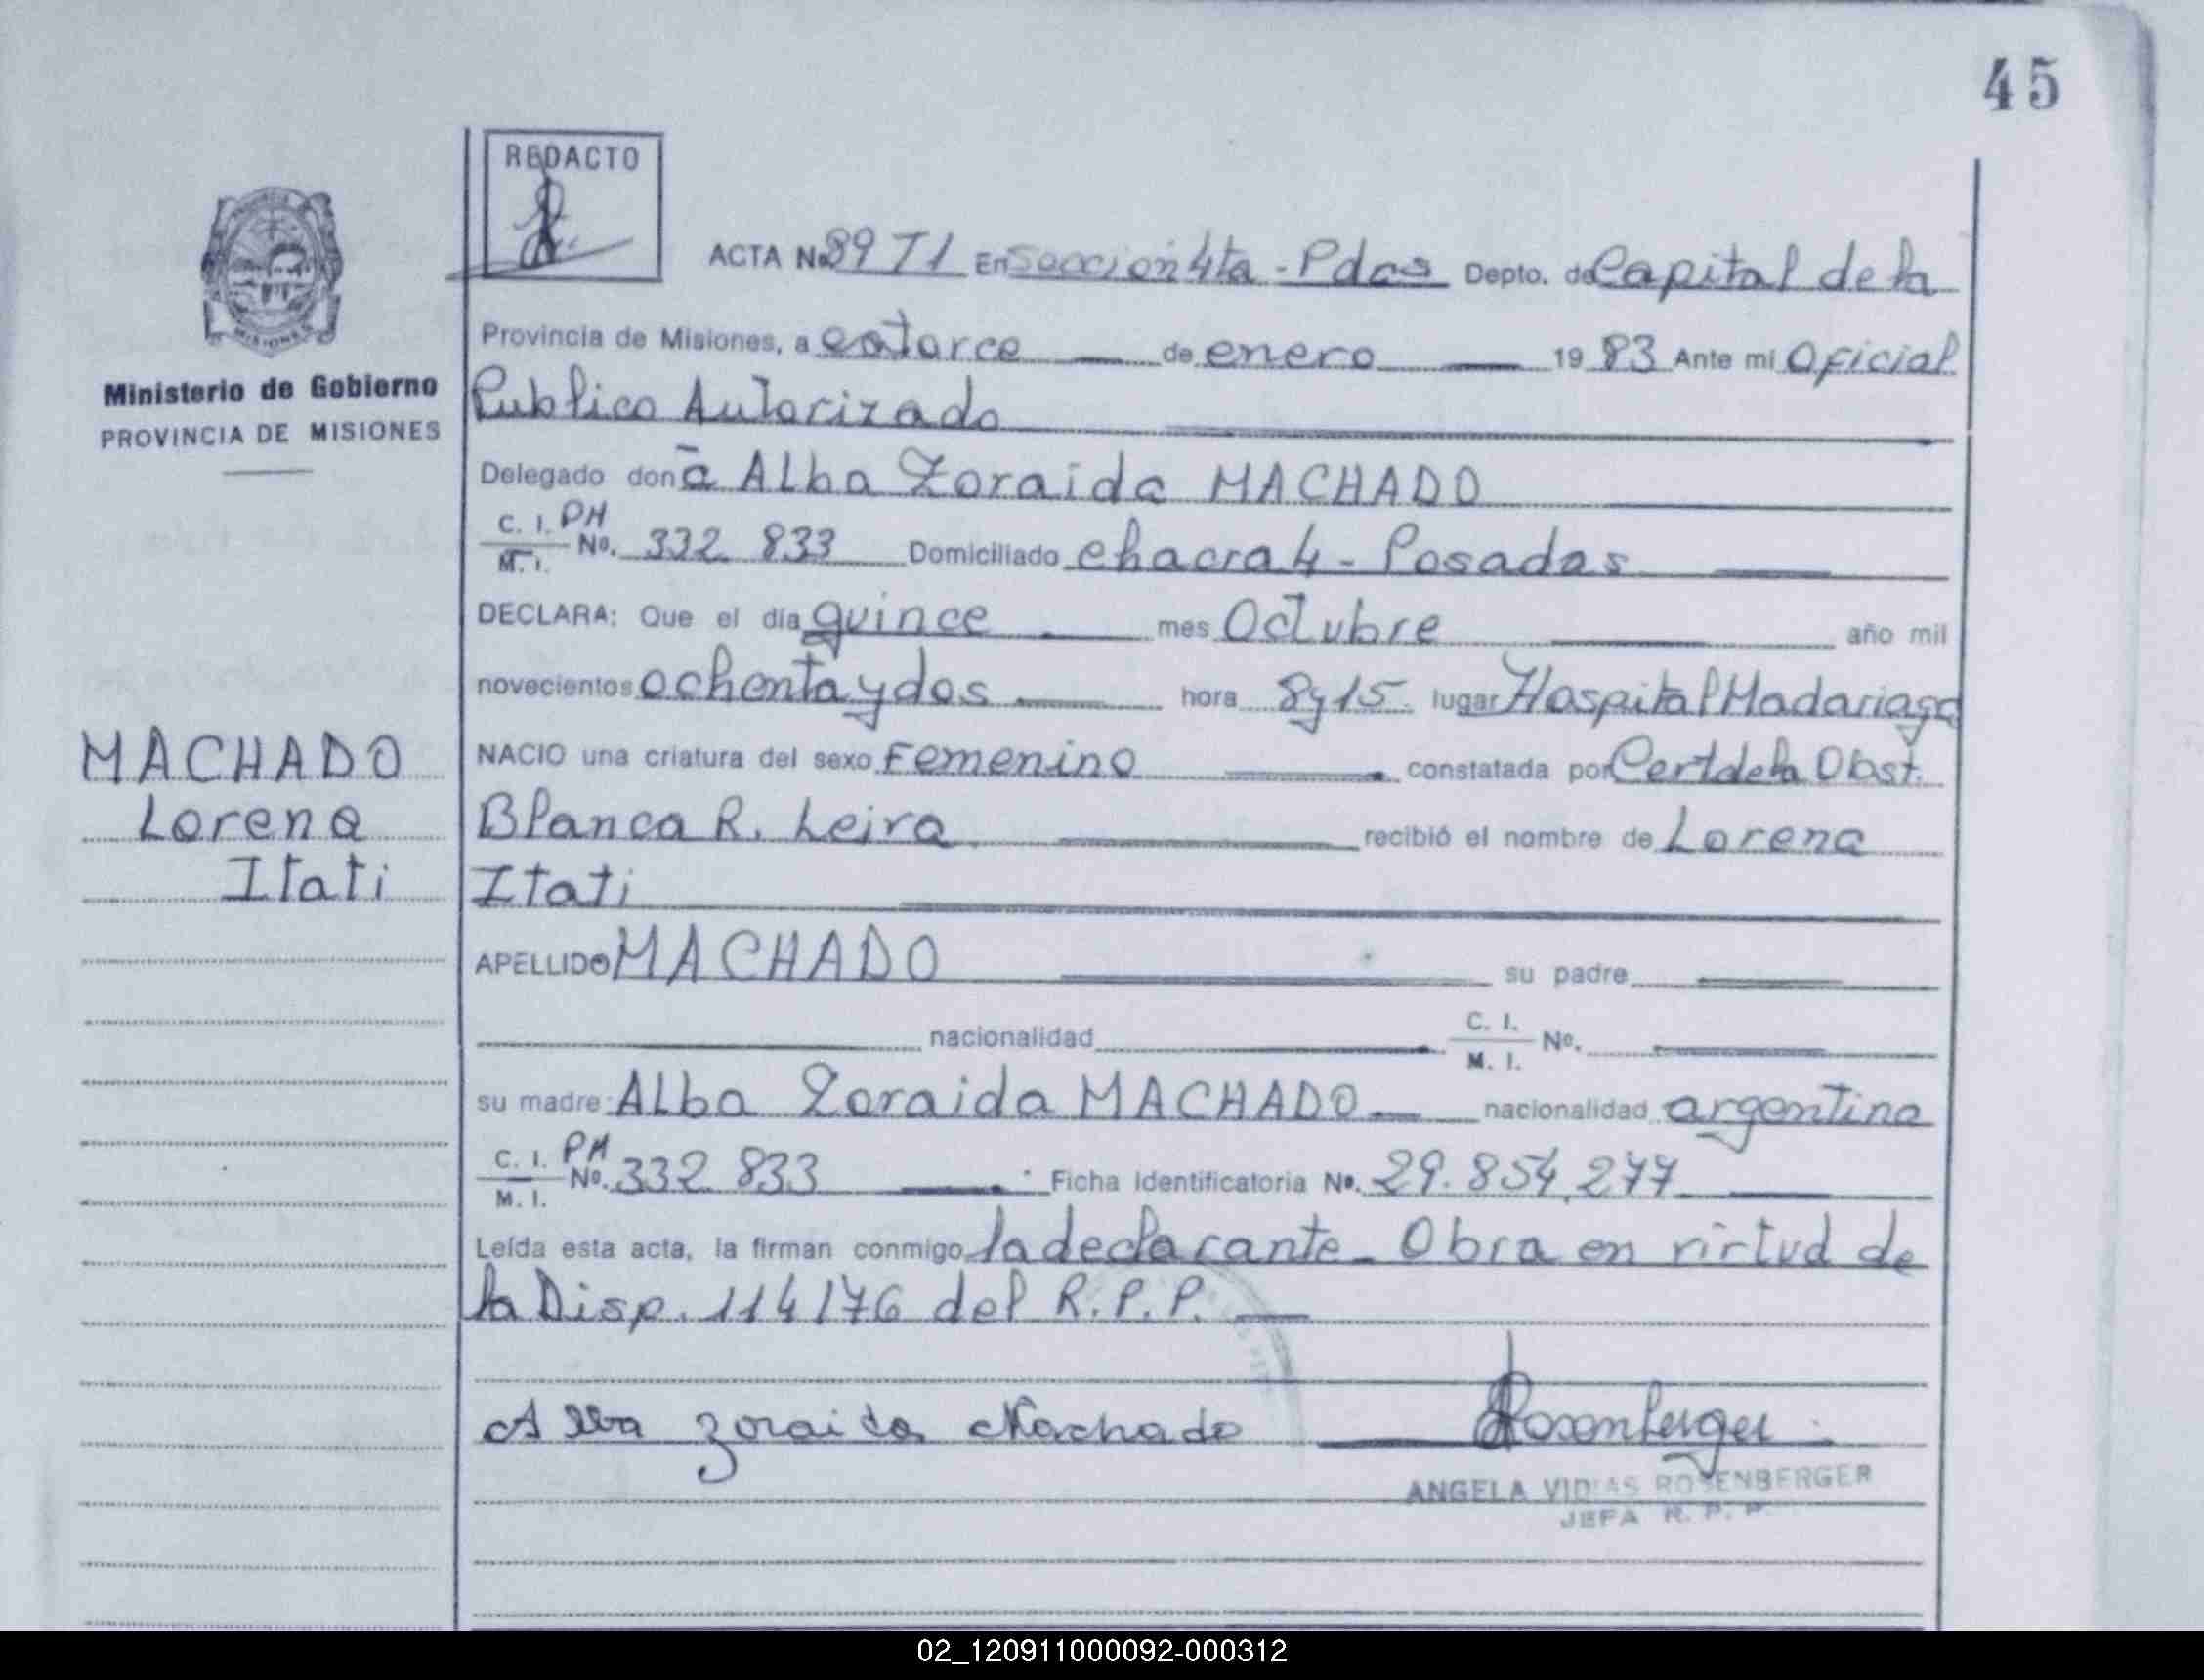 45
REDACTO
ACTA Nº 8971 En Seccion 4ta - Pdas Depto. de Capital de la
Provincia de Misiones, a catorce de enero 1983 Ante mi Oficial
Publico Autorizado
Ministerio de Gobierno
PROVINCIA DE MISIONES
MISIONES
Delegado doña Alba Zoraida MACHADO
C. I. PM
M. I. Nº. 332 833 Domiciliado chacra 4 - Posadas
DECLARA: Que el día quince mes Octubre año mil
novecientos ochenta y dos hora 8 y 15. lugar Hospital Madariaga
NACIO una criatura del sexo Femenino constatada por Cert de la Obst.
Blanca R. Leira recibió el nombre de Lorena
Itati
MACHADO
Lorena
Itati
APELLIDO MACHADO su padre
nacionalidad C. I. Nº.
M. I.
su madre Alba Zoraida MACHADO nacionalidad argentina
C. I. PM
M. I. Nº. 332 833 Ficha Identificatoria Nº. 29.854.277
Leída esta acta, la firman conmigo la declarante - Obra en virtud de
la Disp. 114/76 del R.P.P.
Alba Zoraida Machado Rosenberger
ANGELA VIDAS ROSENBERGER
JEFA R. P. P.
02_120911000092-000312